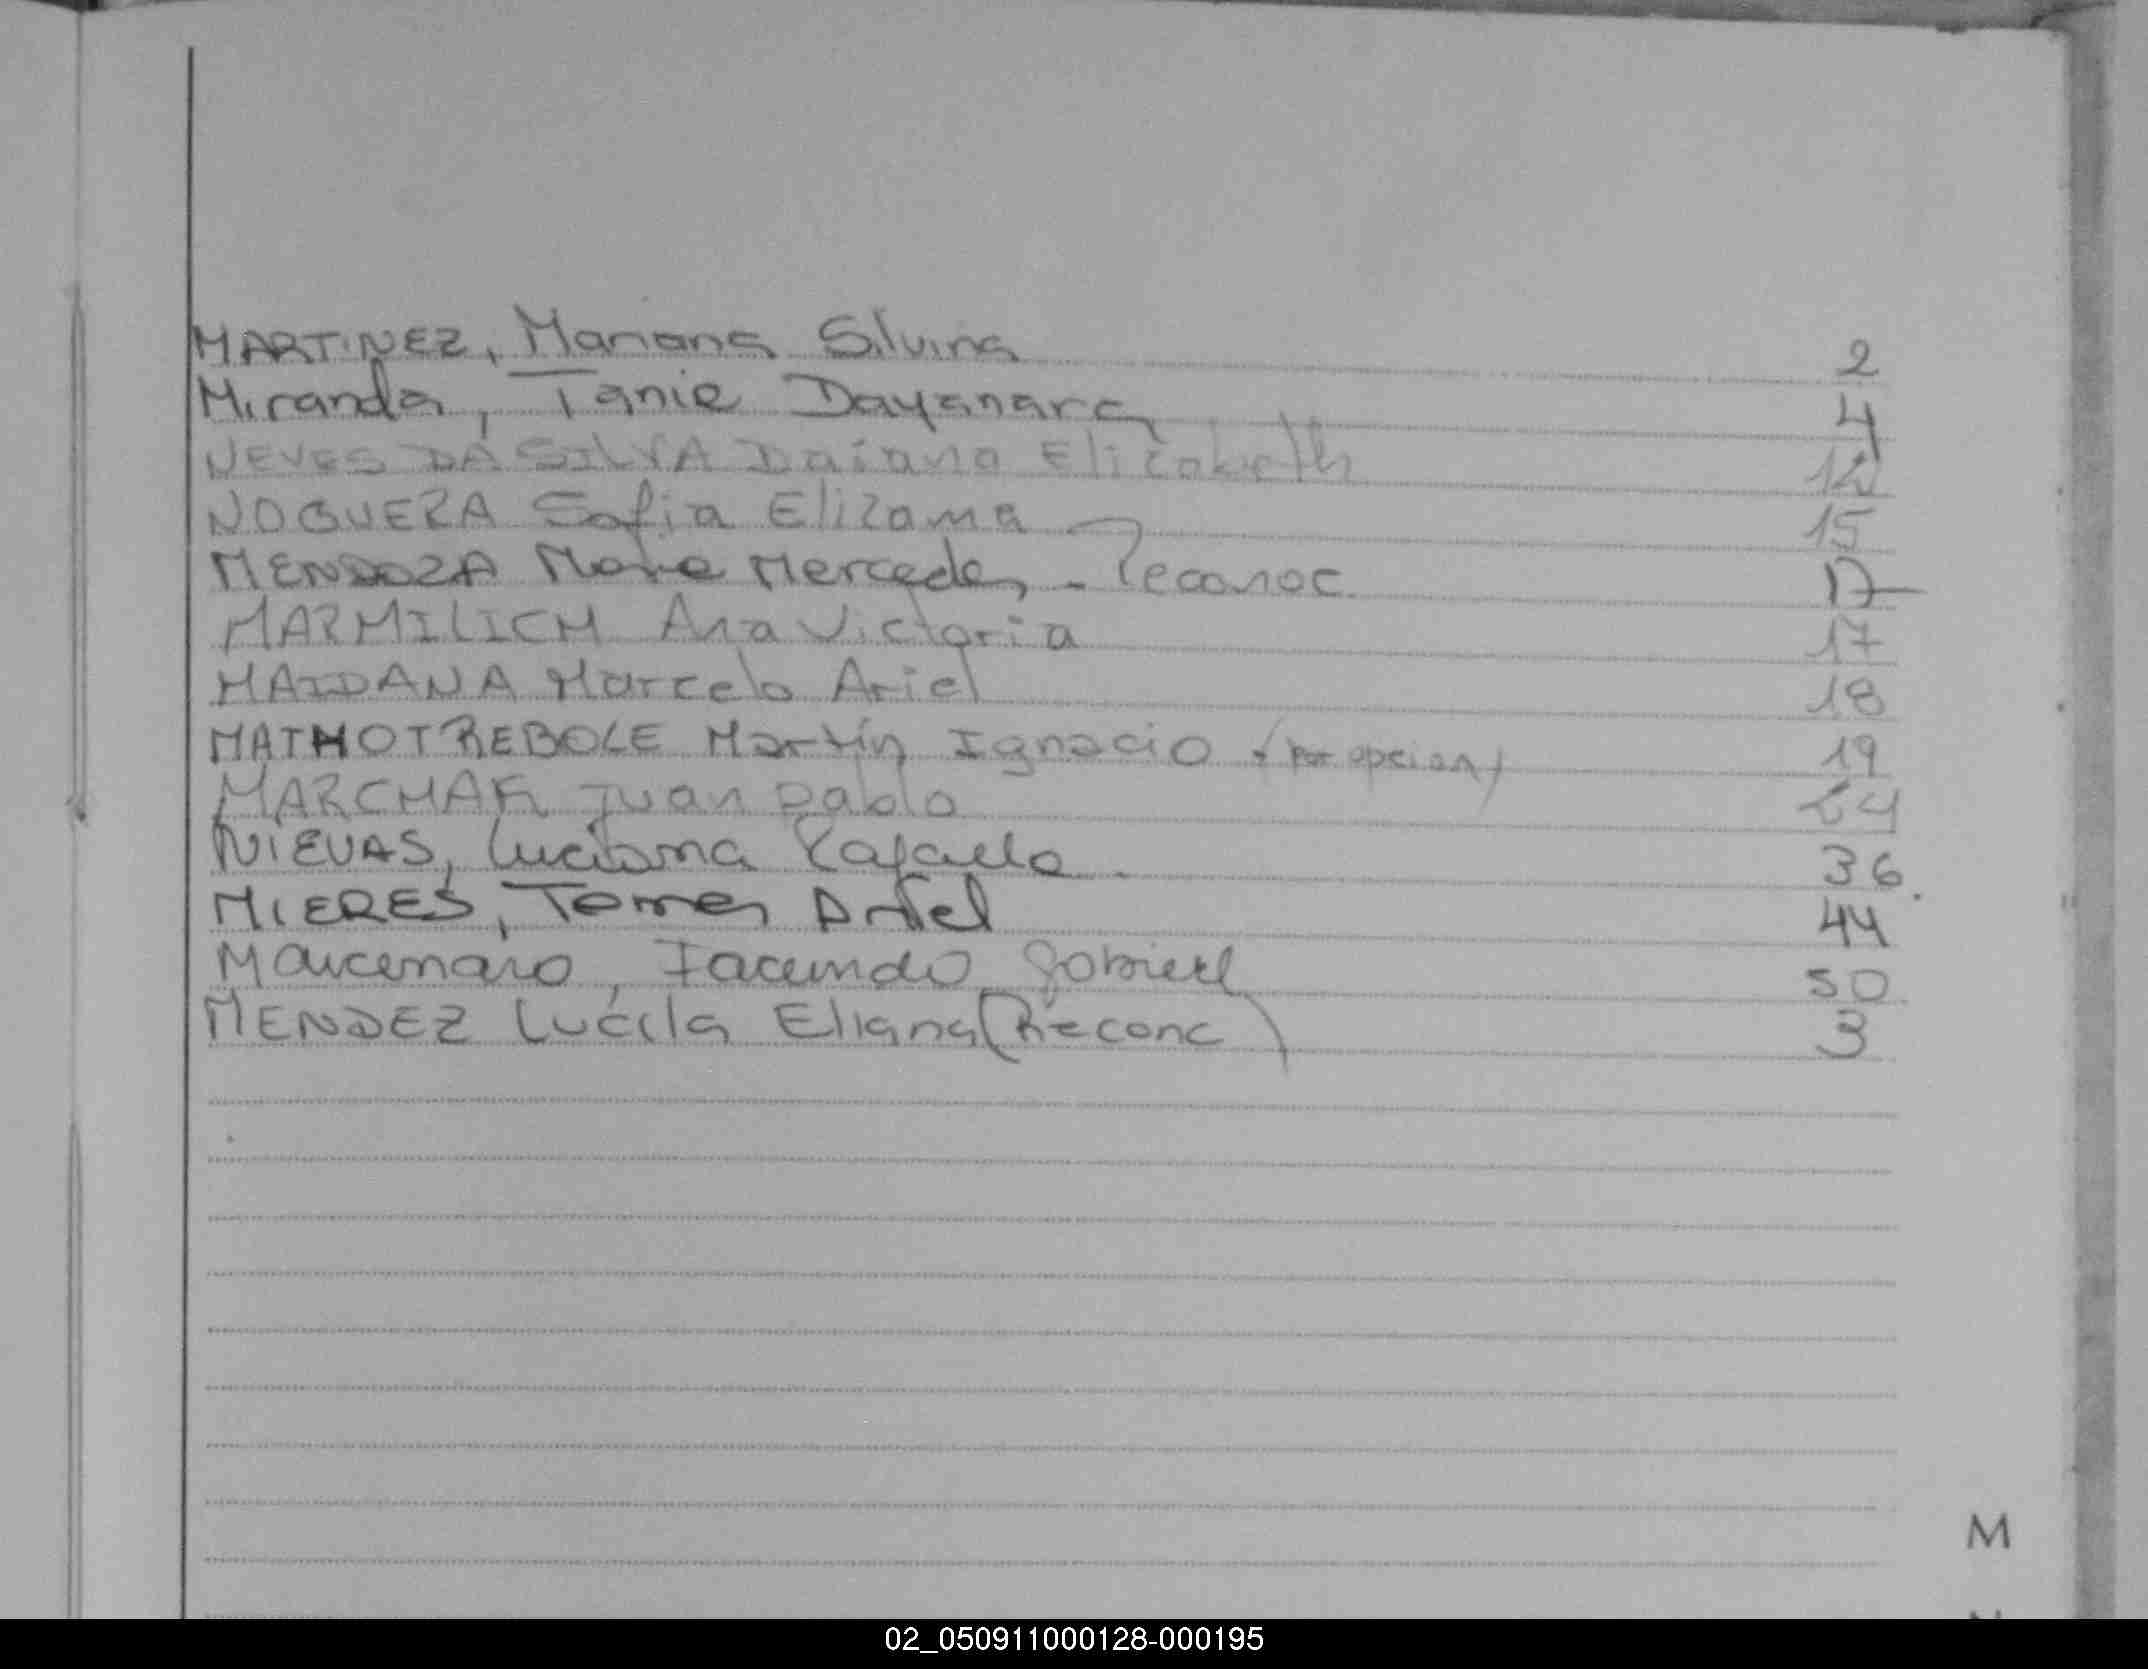 MARTINEZ, Mariana Silvina 2
Miranda, Tania Dayanara 4
NEVES DA SILVA Daiana Elizabeth 12
NOGUERA Sofia Elizama 15
MENDOZA Maria Mercedes - Reconoc 17
MARMILICH Ana Victoria 17
MAIDANA Marcelo Ariel 18
MATHOTREBOLE Martín Ignacio (por opcion) 19
Juan Pablo 24
NIEVAS, Luciana Rafaela 36
MIERES, Tomas Ariel 44
Marcenaro, Facundo Gabriel 50
MENDEZ Lucila Eliana (Reconc) 3
M
02_050911000128-000195